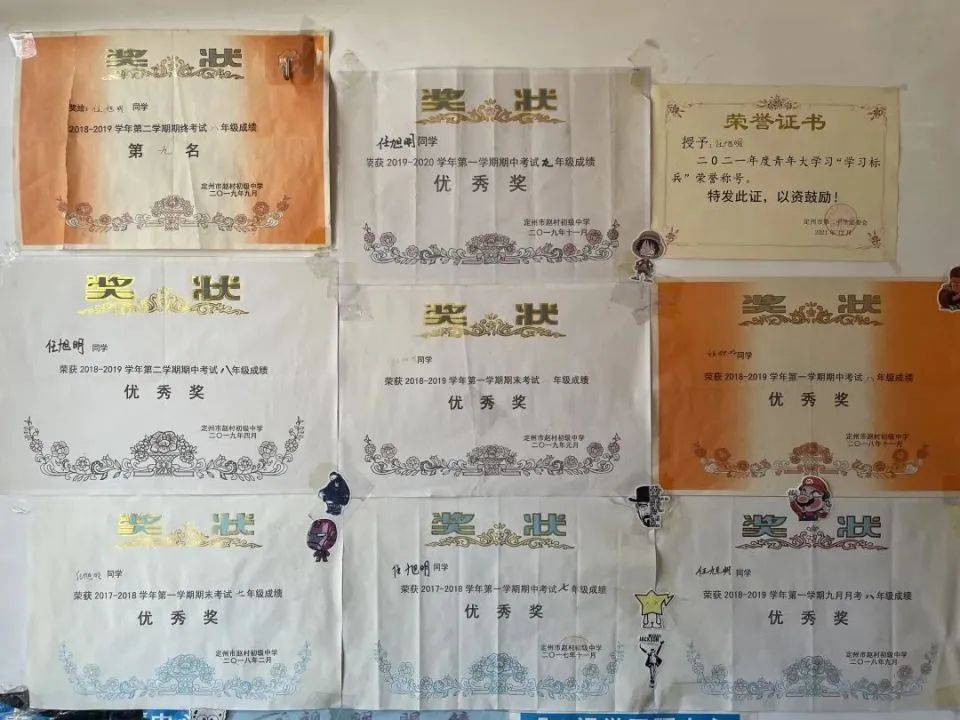 奖 状
奖给：任旭明 同学
2018-2019 学年第二学期期终考试 八年级成绩
第 九 名
定州市赵村初级中学
二〇一九年九月
奖 状
任旭明同学
荣获 2019-2020 学年第一学期期中考试九年级成绩
优 秀 奖
定州市赵村初级中学
二〇一九年十一月
荣誉证书
授予：任旭明
二〇二一年度青年大学习“学习标
兵”荣誉称号。
特发此证，以资鼓励！
2021年12月
奖 状
任旭明 同学
荣获 2018-2019 学年第二学期期中考试八年级成绩
优 秀 奖
定州市赵村初级中学
二〇一九年四月
奖 状
任旭明同学
荣获 2018-2019 学年第一学期期末考试 年级成绩
优 秀 奖
定州市赵村初级中学
二〇一九年元月
奖 状
任旭明同学
荣获 2018-2019 学年第一学期期中考试八年级成绩
优 秀 奖
定州市赵村初级中学
二〇一八年十一月
奖 状
任旭明 同学
荣获 2017-2018 学年第一学期期末考试七年级成绩
优 秀 奖
定州市赵村初级中学
二〇一八年二月
奖 状
任旭明同学
荣获 2017-2018 学年第一学期期中考试七年级成绩
优 秀 奖
定州市赵村初级中学
二〇一七年十一月
奖 状
任旭明 同学
荣获 2018-2019 学年第一学期九月月考八年级成绩
优 秀 奖
定州市赵村初级中学
二〇一八年九月